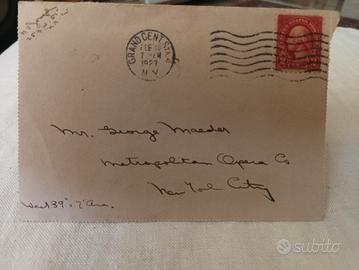 GRAND CENT. STA.
FEB
1927
N.Y.
Mr. George Maeder
Metropolitan Opera Co
New York City
West 39' & 7' Ave.
subito